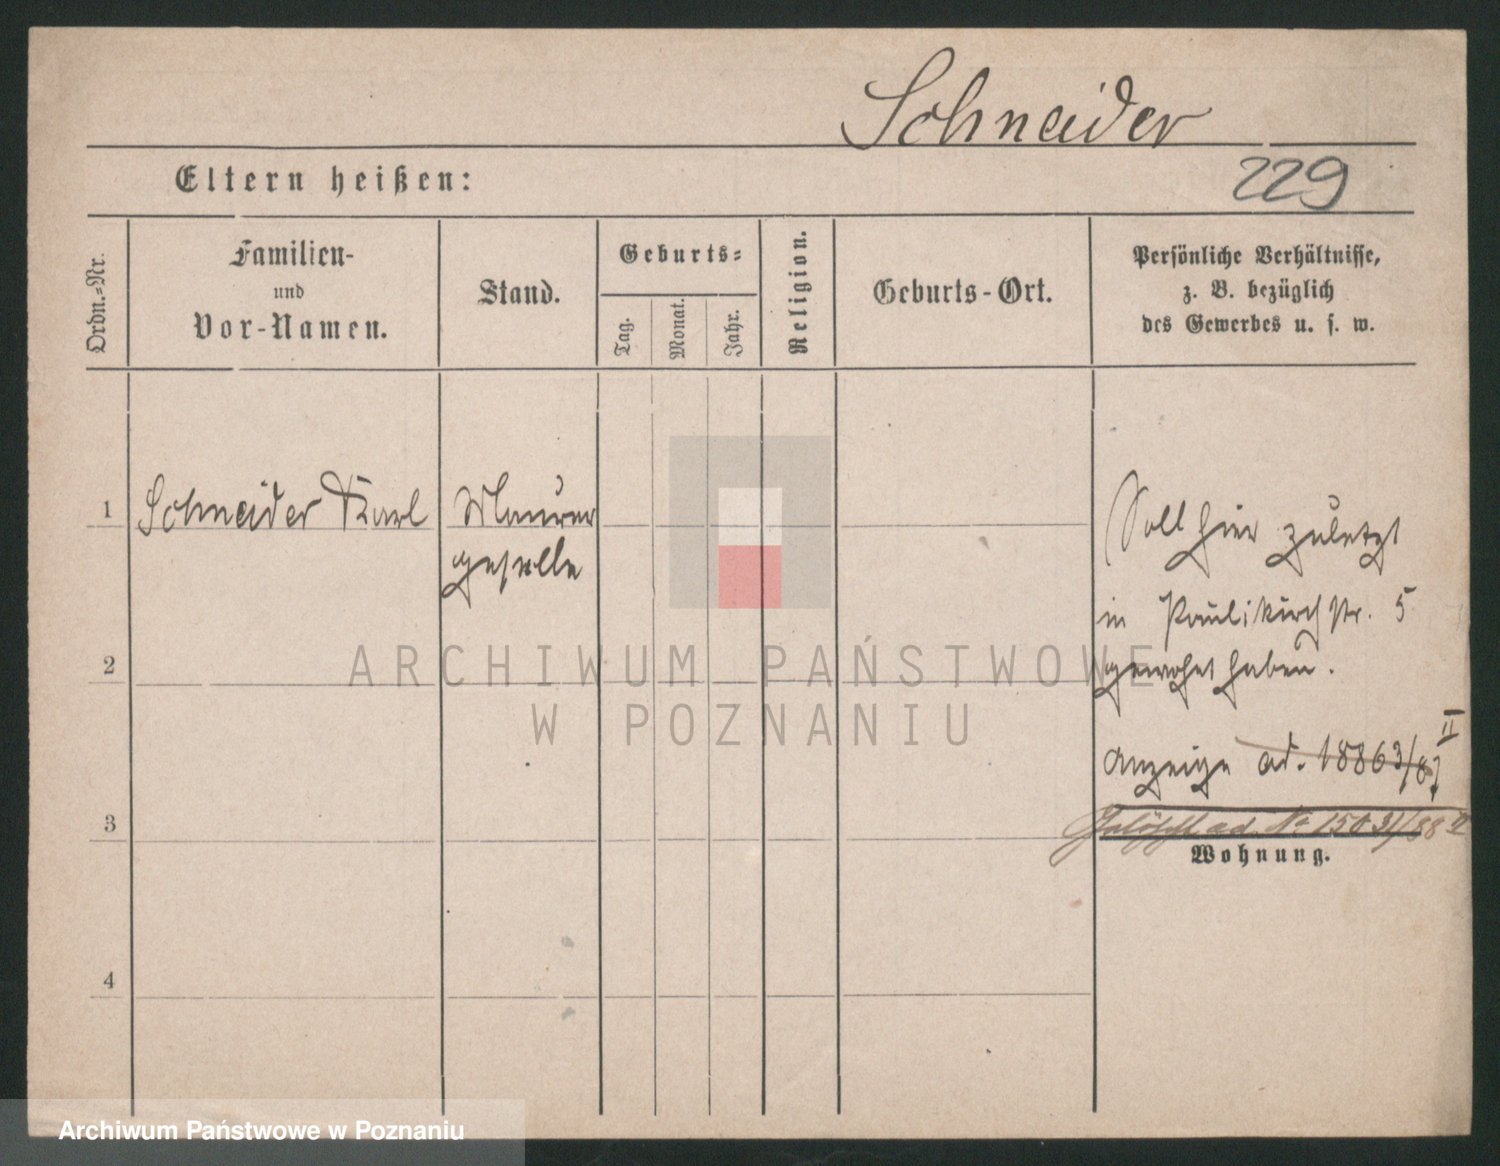 Schneider
Eltern heißen:
229
Ordn.-Nr.
Familien-
und
Vor-Namen.
Stand.
Geburts-
Tag.
Monat.
Jahr.
Religion.
Geburts-Ort.
Persönliche Verhältnisse,
z. B. bezüglich
des Gewerbes u. s. w.
1
Schneider Karl
Maurer
geselle
Soll hier zuletzt
in Paulikirchstr. 5
gewohnt haben.
2
ARCHIWUM PAŃSTWOWE
W POZNANIU
II
Anzeige ad. 18863/87
3
Gelöscht ad. No 15031/88 II
Wohnung.
4
Archiwum Państwowe w Poznaniu